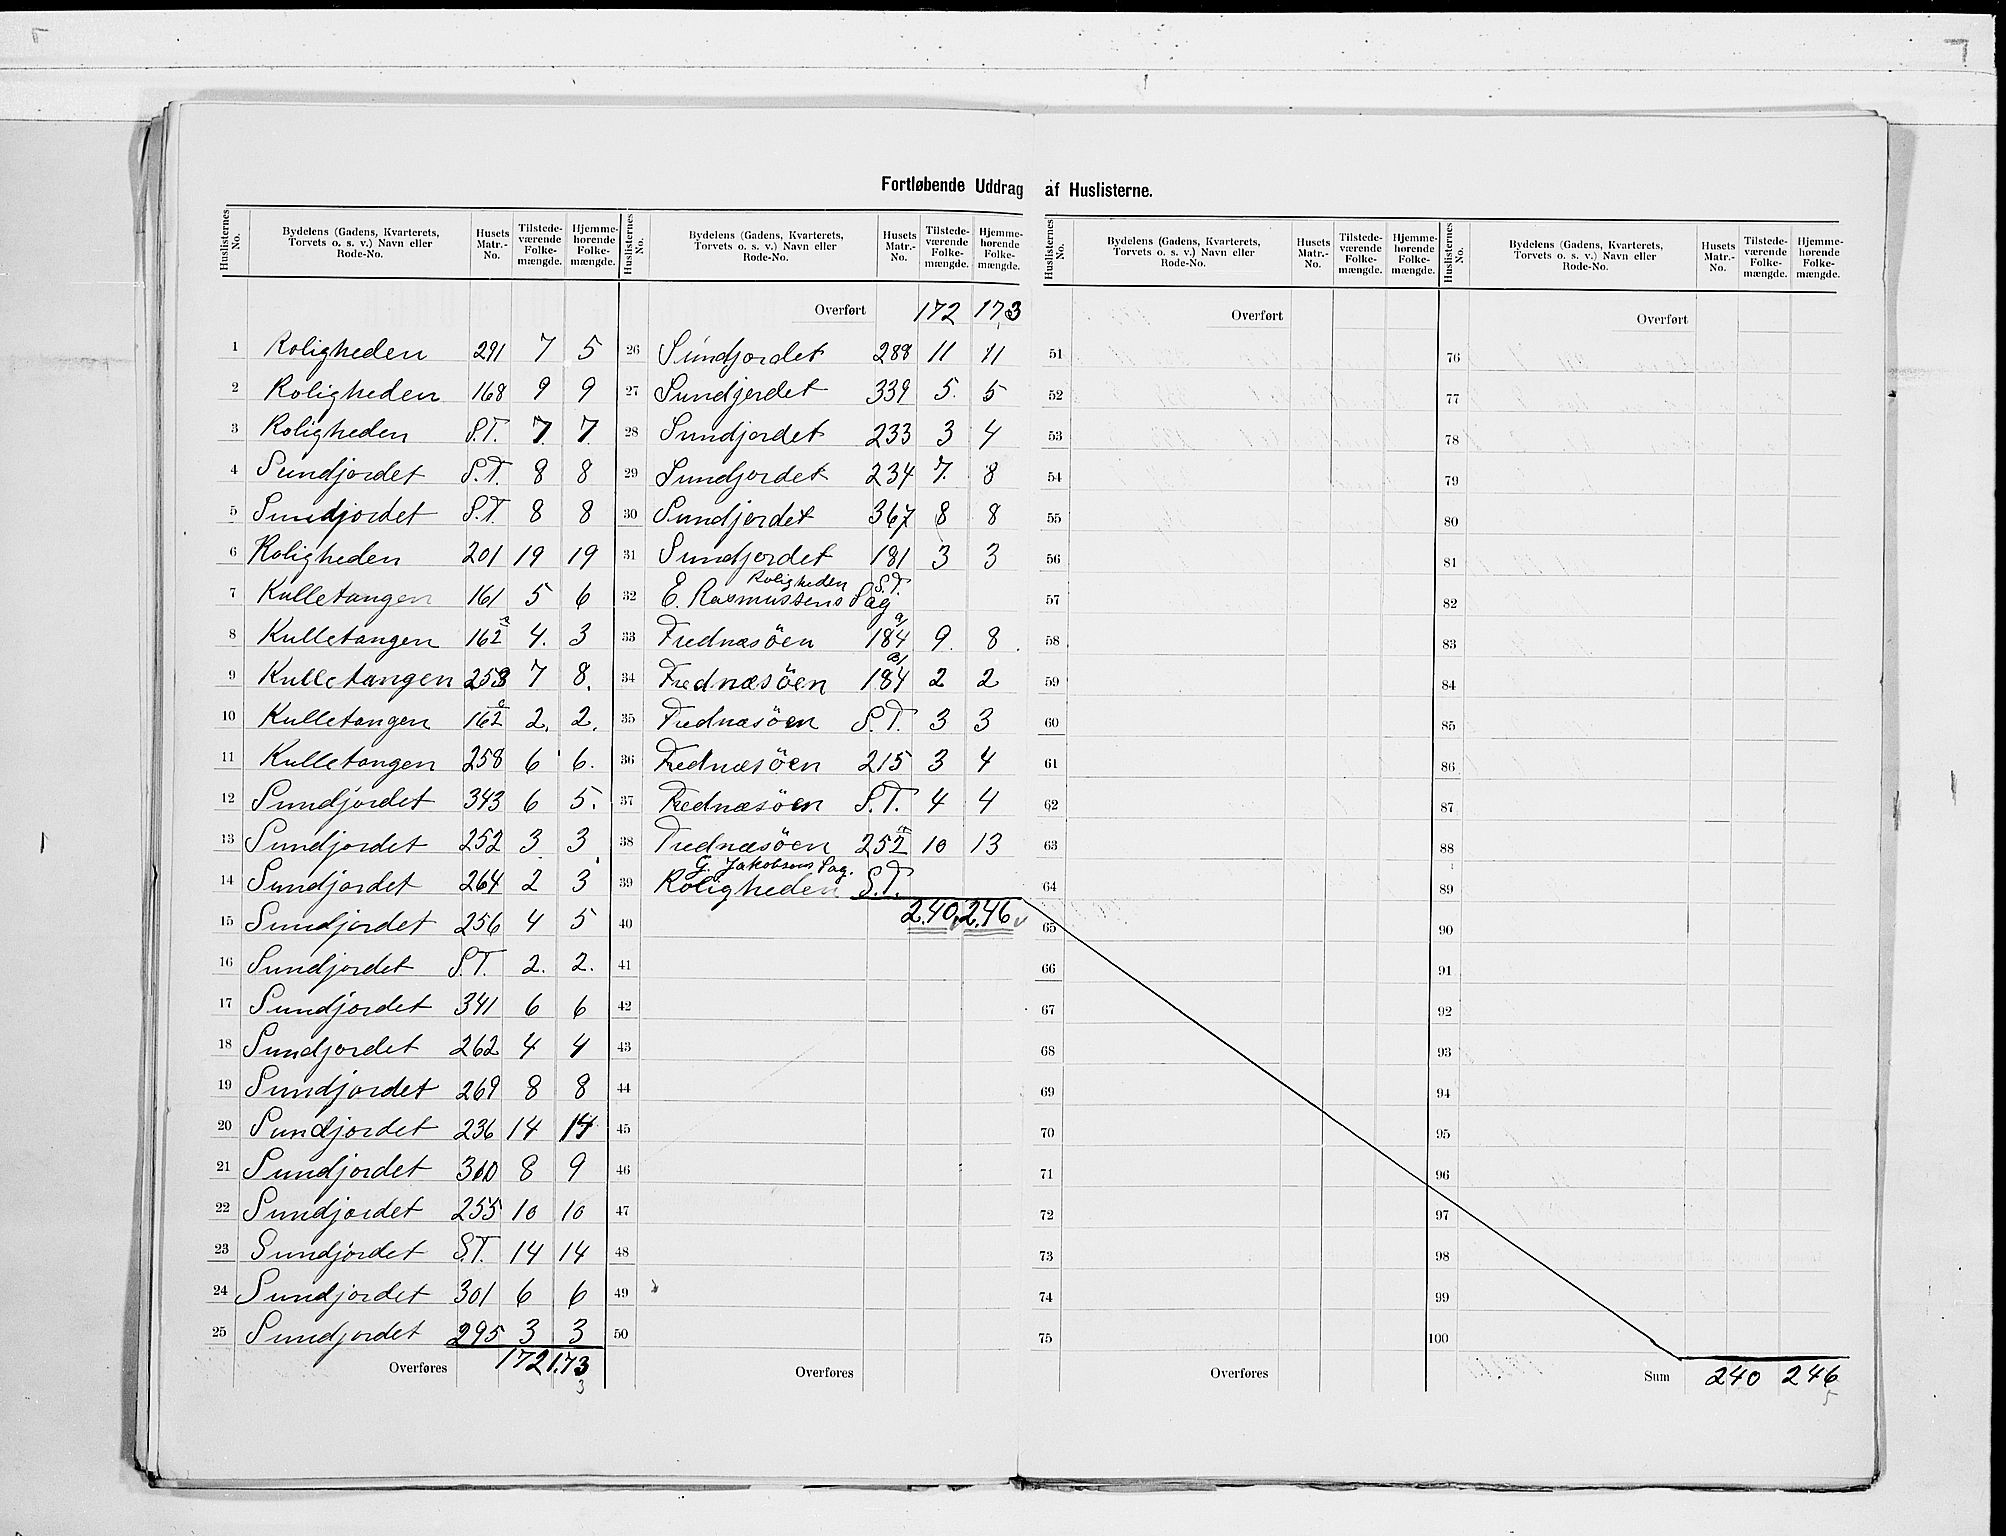 Fortløbende Uddrag af Huslisterne.
Huslisternes No. Bydelens (Gadens, Kvarterets, Torvets o. s. v.) Navn eller Rode-No. Husets Matr.-No. Tilstedeværende Folkemængde. Hjemmehørende Folkemængde.
1 Roligheden 291 7 5
2 Roligheden 168 9 9
3 Roligheden S.T. 7 7
4 Sundjordet S.T. 8 8
5 Sundjordet S.T. 8 8
6 Roligheden 201 19 19
7 Kulletangen 161 5 6
8 Kulletangen 162 4. 3
9 Kulletangen 253 7 8.
10 Kulletangen 162 2. 2.
11 Kulletangen 258 6 6.
12 Sundjordet 343 6 5.
13 Sundjordet 252 3 3
14 Sundjordet 264 2 3
15 Sundjordet 256 4 5
16 Sundjordet S.T. 2. 2.
17 Sundjordet 341 6 6
18 Sundjordet 262 4 4
19 Sundjordet 269 8 8
20 Sundjordet 236 14 14
21 Sundjordet 310 8 9
22 Sundjordet 255 10 10
23 Sundjordet S.T. 14 14
24 Sundjordet 301 6 6
25 Sundjordet 295 3 3
Overføres 172 173
3
Huslisternes No. Bydelens (Gadens, Kvarterets, Torvets o. s. v.) Navn eller Rode-No. Husets Matr.-No. Tilstedeværende Folkemængde. Hjemmehørende Folkemængde.
Overført 172 173
26 Sundjordet 288 11 11
27 Sundjordet 339 5. 5
28 Sundjordet 233 3 4
29 Sundjordet 234 7. 8
30 Sundjordet 367 8 8
31 Sundjordet 181 3 3
Roligheden S.T.
32 E. Rasmussens Sag
33 Frednæsöen 184 9. 8
34 Frednæsöen 184 2 2
35 Frednæsöen S.T. 3 3
36 Frednæsöen 215 3 4
37 Frednæsöen S.T. 4 4
38 Frednæsöen 252 10 13
G. Jakobsens Sag.
39 Roligheden S.T.
40 240 246
41
42
43
44
45
46
47
48
49
50
Overføres
Huslisternes No. Bydelens (Gadens, Kvarterets, Torvets o. s. v.) Navn eller Rode-No. Husets Matr.-No. Tilstedeværende Folkemængde. Hjemmehørende Folkemængde.
Overført
51
52
53
54
55
56
57
58
59
60
61
62
63
64
65
66
67
68
69
70
71
72
73
74
75
Overføres
Huslisternes No. Bydelens (Gadens, Kvarterets, Torvets o. s. v.) Navn eller Rode-No. Husets Matr.-No. Tilstedeværende Folkemængde. Hjemmehørende Folkemængde.
Overført
76
77
78
79
80
81
82
83
84
85
86
87
88
89
90
91
92
93
94
95
96
97
98
99
100
Sum 240 246
5